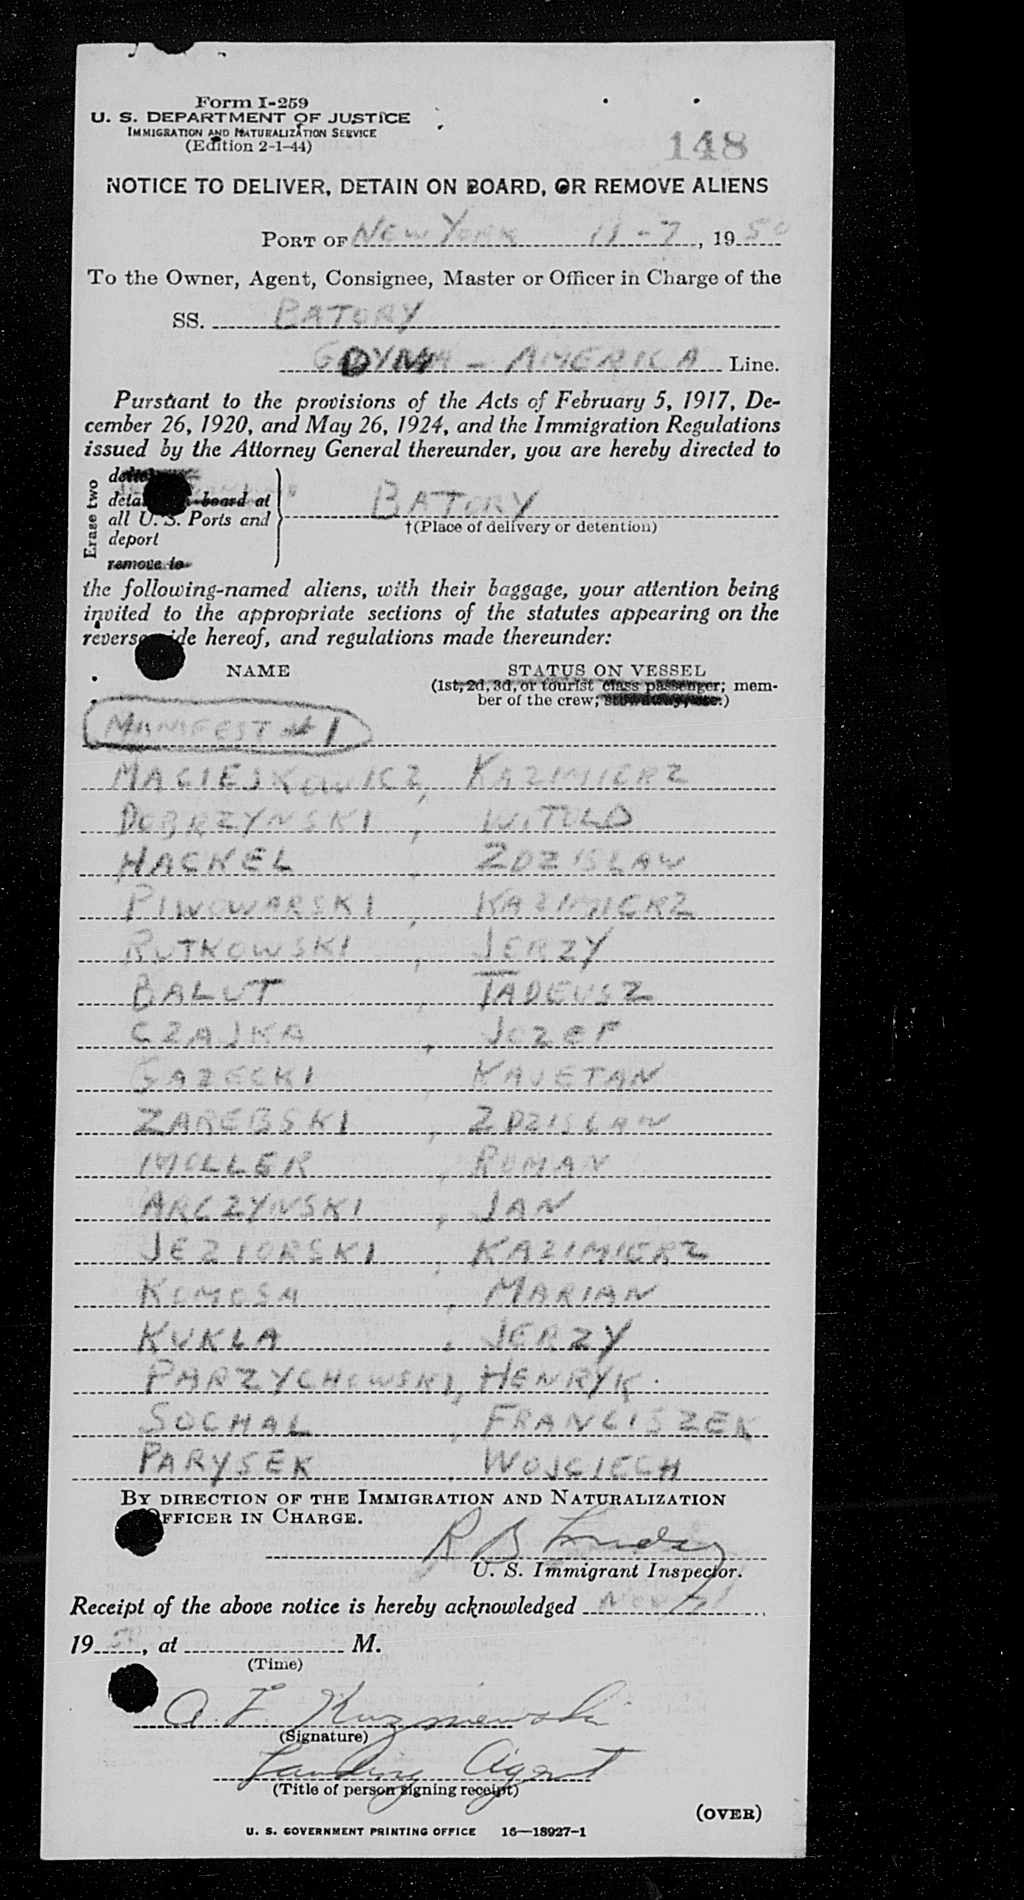 Form I-259
U. S. DEPARTMENT OF JUSTICE
IMMIGRATION AND NATURALIZATION SERVICE
(Edition 2-1-44)
148
NOTICE TO DELIVER, DETAIN ON BOARD, OR REMOVE ALIENS
PORT OF NEW YORK 11-7, 1950
To the Owner, Agent, Consignee, Master or Officer in Charge of the
SS. BATORY
GDYNIA - AMERICA Line.
Pursuant to the provisions of the Acts of February 5, 1917, De-
cember 26, 1920, and May 26, 1924, and the Immigration Regulations
issued by the Attorney General thereunder, you are hereby directed to
Erase two
board at
all U. S. Ports and
deport
remove to
BATORY
†(Place of delivery or detention)
the following-named aliens, with their baggage, your attention being
invited to the appropriate sections of the statutes appearing on the
reverse side hereof, and regulations made thereunder:
NAME STATUS ON VESSEL
(1st, 2d, 3d, or tourist class passenger; mem-
ber of the crew; stowaway, etc.)
MANIFEST #1
MACIESKOWICZ, KAZIMIERZ
DOBRZYNSKI, WITOLD
HACKEL, ZDZISLAW
PIWOWARSKI, KAZIMIERZ
RUTKOWSKI, JERZY
BALUT, TADEUSZ
CZAJKA, JOZEF
GAZECKI, KAJETAN
ZAREBSKI, ZDZISLAW
MOLLER, ROMAN
ARCZYNSKI, JAN
JEZIORSKI, KAZIMIERZ
KOMOSA, MARIAN
KUKLA, JERZY
PARZYCHOWSKI, HENRYK.
SOCHAL, FRANCISZEK
PARYSEK, WOJCIECH
BY DIRECTION OF THE IMMIGRATION AND NATURALIZATION
OFFICER IN CHARGE.
R B Lindsey
U. S. Immigrant Inspector.
Receipt of the above notice is hereby acknowledged Nov 7
1950, at M.
(Time)
A. F. Kuzniewski
(Signature)
Landing Agent
(Title of person signing receipt)
(OVER)
U. S. GOVERNMENT PRINTING OFFICE 16—18927-1